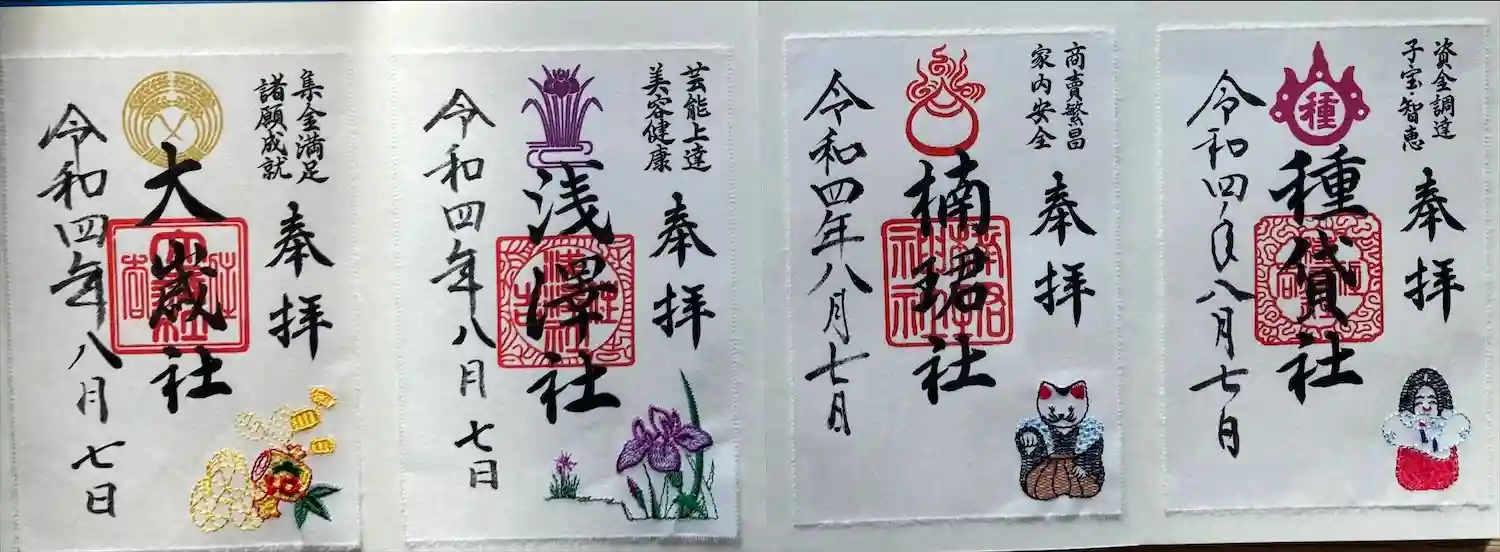 資金調達
子宝智恵
奉拝
種
種貸社
令和四年八月七日
商賣繁昌
家内安全
奉拝
楠珺社
令和四年八月七日
芸能上達
美容健康
奉拝
浅澤社
令和四年八月七日
集金満足
諸願成就
奉拝
大歳社
令和四年八月七日